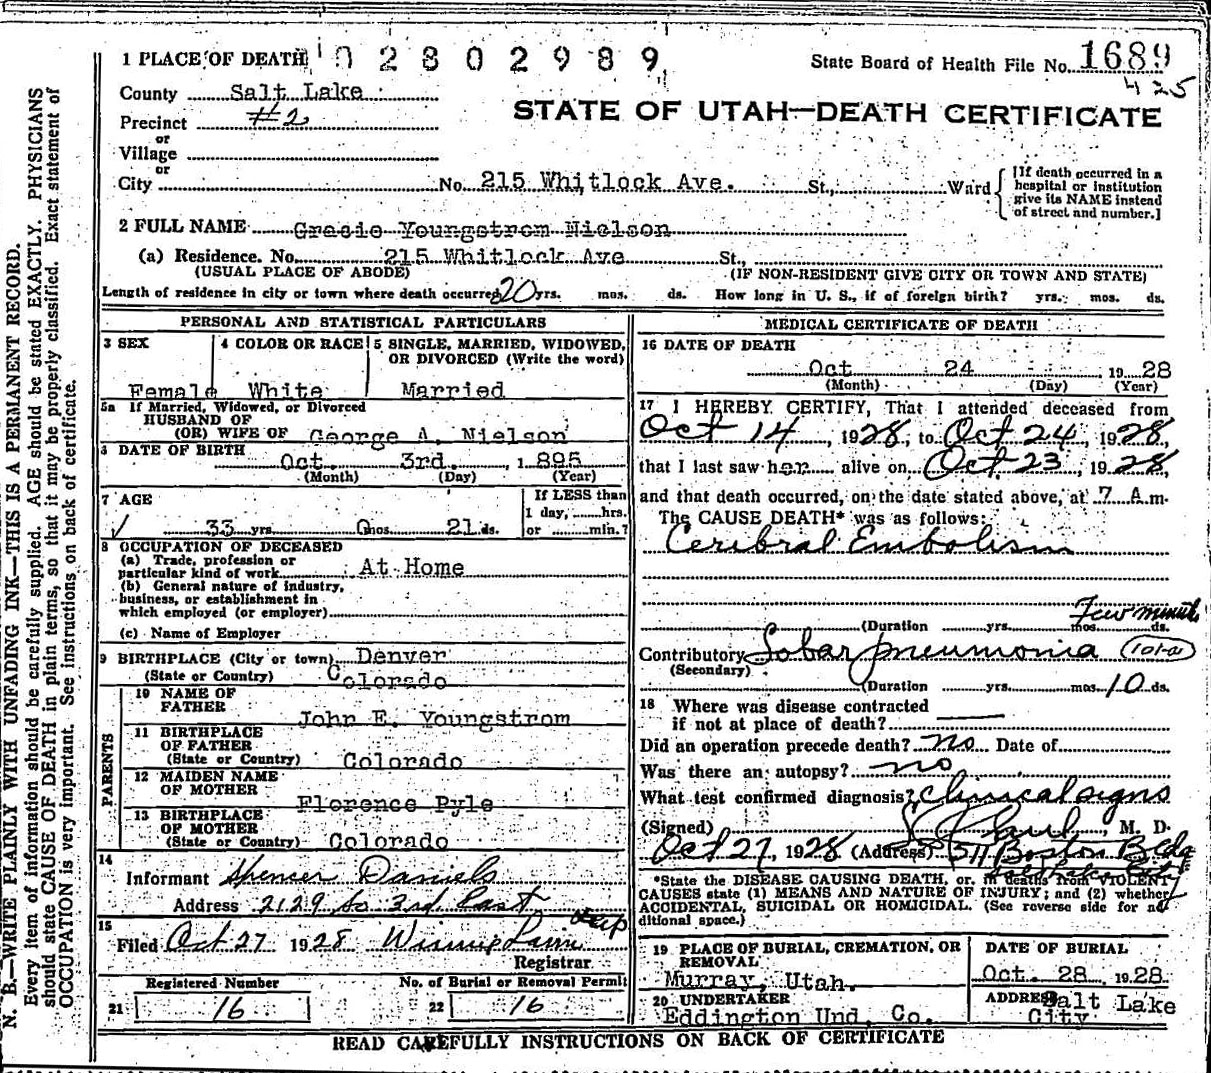 N. B.—WRITE PLAINLY WITH UNFADING INK—THIS IS A PERMANENT RECORD.
Every item of information should be carefully supplied. AGE should be stated EXACTLY. PHYSICIANS
should state CAUSE OF DEATH in plain terms, so that it may be properly classified. Exact statement of
OCCUPATION is very important. See instructions on back of certificate.
1 PLACE OF DEATH
02802989
State Board of Health File No. 1689
425
County Salt Lake
STATE OF UTAH—DEATH CERTIFICATE
Precinct #2
or
Village
or
City No. 215 Whitlock Ave. St., Ward
[If death occurred in a
hospital or institution
give its NAME instead
of street and number.]
2 FULL NAME Gracie Youngstrom Nielson
(a) Residence. No. 215 Whitlock Ave St.,
(USUAL PLACE OF ABODE) (IF NON-RESIDENT GIVE CITY OR TOWN AND STATE)
Length of residence in city or town where death occurred 20 yrs. mos. ds. How long in U. S., if of foreign birth? yrs. mos. ds.
PERSONAL AND STATISTICAL PARTICULARS
3 SEX 4 COLOR OR RACE 5 SINGLE, MARRIED, WIDOWED,
OR DIVORCED (Write the word)
Female White Married
5a If Married, Widowed, or Divorced
HUSBAND OF
(OR) WIFE OF George A. Nielson
6 DATE OF BIRTH
Oct. 3rd. 1895
(Month) (Day) (Year)
7 AGE If LESS than
1 day, hrs.
33 yrs 0 mos. 21 ds. or min.?
8 OCCUPATION OF DECEASED
(a) Trade, profession or
particular kind of work At Home
(b) General nature of industry,
business, or establishment in
which employed (or employer)
(c) Name of Employer
9 BIRTHPLACE (City or town) Denver
(State or Country) Colorado
PARENTS
10 NAME OF
FATHER John E. Youngstrom
11 BIRTHPLACE
OF FATHER
(State or Country) Colorado
12 MAIDEN NAME
OF MOTHER Florence Pyle
13 BIRTHPLACE
OF MOTHER
(State or Country) Colorado
14
Informant Spencer Daniels
Address 2129 So 3rd East
15
Filed Oct 27 1928
Registrar
Registered Number No. of Burial or Removal Permit
21 16 22 16
MEDICAL CERTIFICATE OF DEATH
16 DATE OF DEATH
Oct 24 1928
(Month) (Day) (Year)
17 I HEREBY CERTIFY, That I attended deceased from
Oct 14, 1928, to Oct 24, 1928,
that I last saw her alive on Oct. 23, 1928,
and that death occurred, on the date stated above, at 7 A.m.
The CAUSE DEATH* was as follows:
Ceribral Embolism
Few minutes
(Duration yrs. mos. ds.
Contributory Lobar pneumonia 101-a
(Secondary)
(Duration yrs. mos. 10 ds.
18 Where was disease contracted
if not at place of death?
Did an operation precede death? no Date of
Was there an autopsy? no
What test confirmed diagnosis? Clinical signs
(Signed) Paul, M. D.
Oct 27, 1928 (Address) 511 Boston Bldg
*State the DISEASE CAUSING DEATH, or, in deaths from VIOLENT
CAUSES state (1) MEANS AND NATURE OF INJURY; and (2) whether
ACCIDENTAL, SUICIDAL OR HOMICIDAL. (See reverse side for ad
ditional space.)
19 PLACE OF BURIAL, CREMATION, OR
REMOVAL
Murray, Utah.
DATE OF BURIAL
Oct. 28 1928
20 UNDERTAKER
Eddington Und. Co.
ADDRESS Salt Lake
City
READ CAREFULLY INSTRUCTIONS ON BACK OF CERTIFICATE